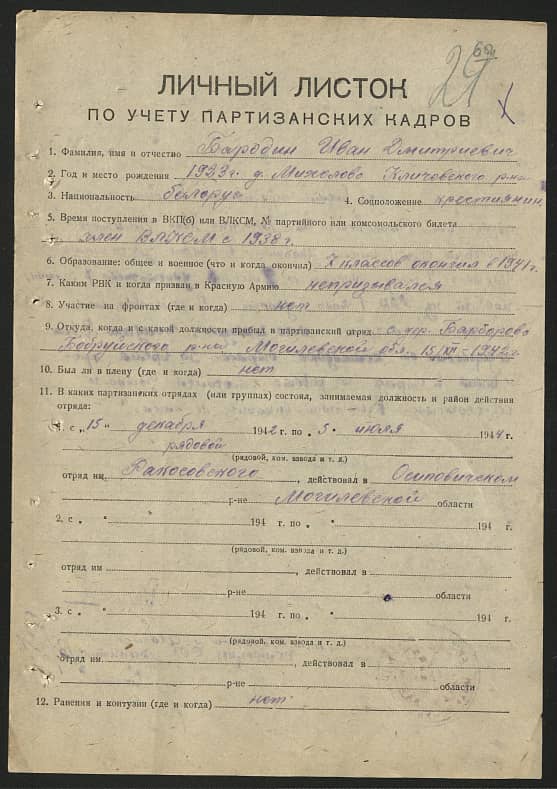 29
ЛИЧНЫЙ ЛИСТОК
ПО УЧЕТУ ПАРТИЗАНСКИХ КАДРОВ
1. Фамилия, имя и отчество Бародин Иван Дмитриевич
2. Год и место рождения 1923 г. д. Михолово Кличевского р-на
3. Национальность белорус 4. Соцположение крестиянин
5. Время поступления в ВКП(б) или ВЛКСМ, № партийного или комсомольского билета
член ВЛКСМ с 1938 г.
6. Образование: общее и военное (что и когда окончил) 7 классов окончил в 1941 г.
7. Каким РВК и когда призван в Красную Армию непризывался
8. Участие на фронтах (где и когда) нет
9. Откуда, когда и с какой должности прибыл в партизанский отряд с др. Барборово
Бобруйского р-на Могилевской обл. 15/XII-1942 г.
10. Был ли в плену (где и когда) нет
11. В каких партизанских отрядах (или группах) состоял, занимаемая должность и район действия
отряда:
1. с „15" декабря 1942 г. по „5" июля 1944 г.
рядовой
(рядовой, ком. взвода и т. д.)
отряд им. Ракосовского, действовал в Осиповичском
р-не Могилевской области
2. с „ " 194 г. по „ " 194 г.
(рядовой, ком. взвода и т. д.)
отряд им , действовал в
р-не области
3. с „ " 194 г. по „ " 194 г.
(рядовой, ком. взвода и т. д.)
отряд им. , действовал в
р-не области
12. Ранения и контузии (где и когда) нет